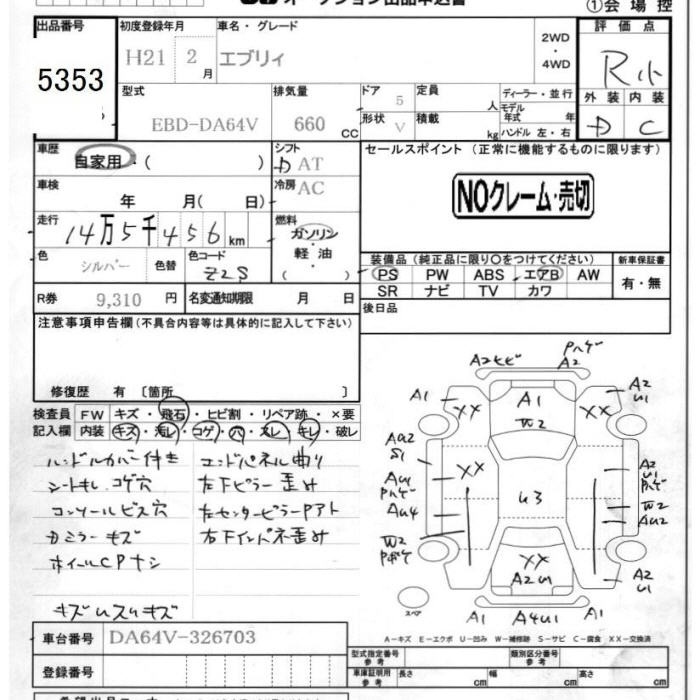 オークション出品申込書
①会場控
出品番号 初度登録年月 車名・グレード 評価点
5353 H21 2月 エブリィ 2WD・4WD R小
型式 排気量 ドア 定員 ディーラー・並行 外装 内装
EBD-DA64V 660 CC 5 人 モデル年式 年 D C
形状 V 積載 kg ハンドル 左・右
車歴 自家用・( ) シフト DAT セールスポイント (正常に機能するものに限ります)
車検 年 月( 日) 冷房 AC
NOクレーム・売切
走行 14万5千456km 燃料 ガソリン・軽油 ( )
色 シルバー 色替 色コード Z2S
装備品 (純正品に限り〇をつけてください) 新車保証書
PS PW ABS エアB AW 有・無
SR ナビ TV カワ
R券 9,310 円 名変通知期限 月 日 後日品
注意事項申告欄 (不具合内容等は具体的に記入して下さい)
修復歴 有 〔箇所 〕
検査員 FW キズ・飛石・ヒビ割・リペア跡・×要
記入欄 内装 キズ・汚レ・コゲ・穴・スレ・キレ・破レ
ハンドルカバー付き エンドパネル曲り
シートキレ コゲ穴 左下ピラー歪み
コンソールビス穴 左センターピラーPアト
カミラーキズ 右下インパネ歪み
ホイールCPナシ
キズUスリキズ
A2ヒビ Pハゲ A2
A1 XX A1 XX A2 U1
W2
AU2 S1
XX A2 U1 Pハゲ
AU1 Pハゲ U3
AU4 W2 AU2
W2 Pボケ
XX A2U1 A2 U1
スペア A1 A4U1 A1
A-キズ E-エクボ U-凹み W-補修跡 S-サビ C-腐食 XX-交換済
車台番号 DA64V-326703
型式指定番号 参考 類別区分番号 参考
登録番号 車庫証明用 参考 長さ cm 幅 cm 高さ cm